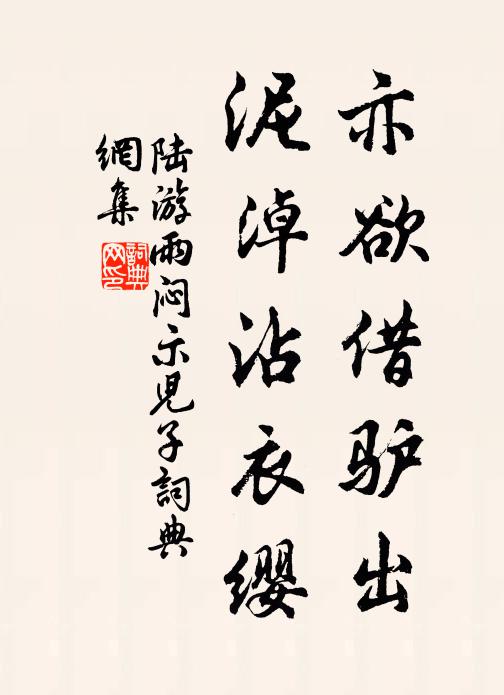 亦欲借驴出
泥淖沾衣缨
陆游雨闷示儿子詞典
網集
詞典網印